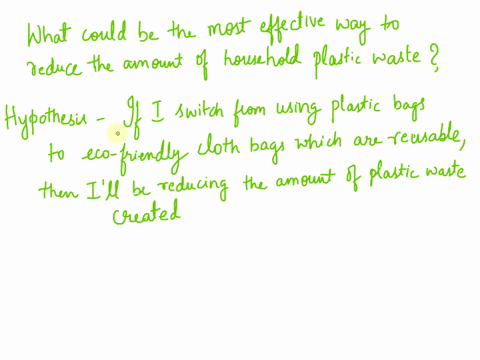 What could be the most effective way to
reduce the amount of household plastic waste?
Hypothesis - If I switch from using plastic bags
to eco-friendly cloth bags which are reusable,
then I'll be reducing the amount of plastic waste
created